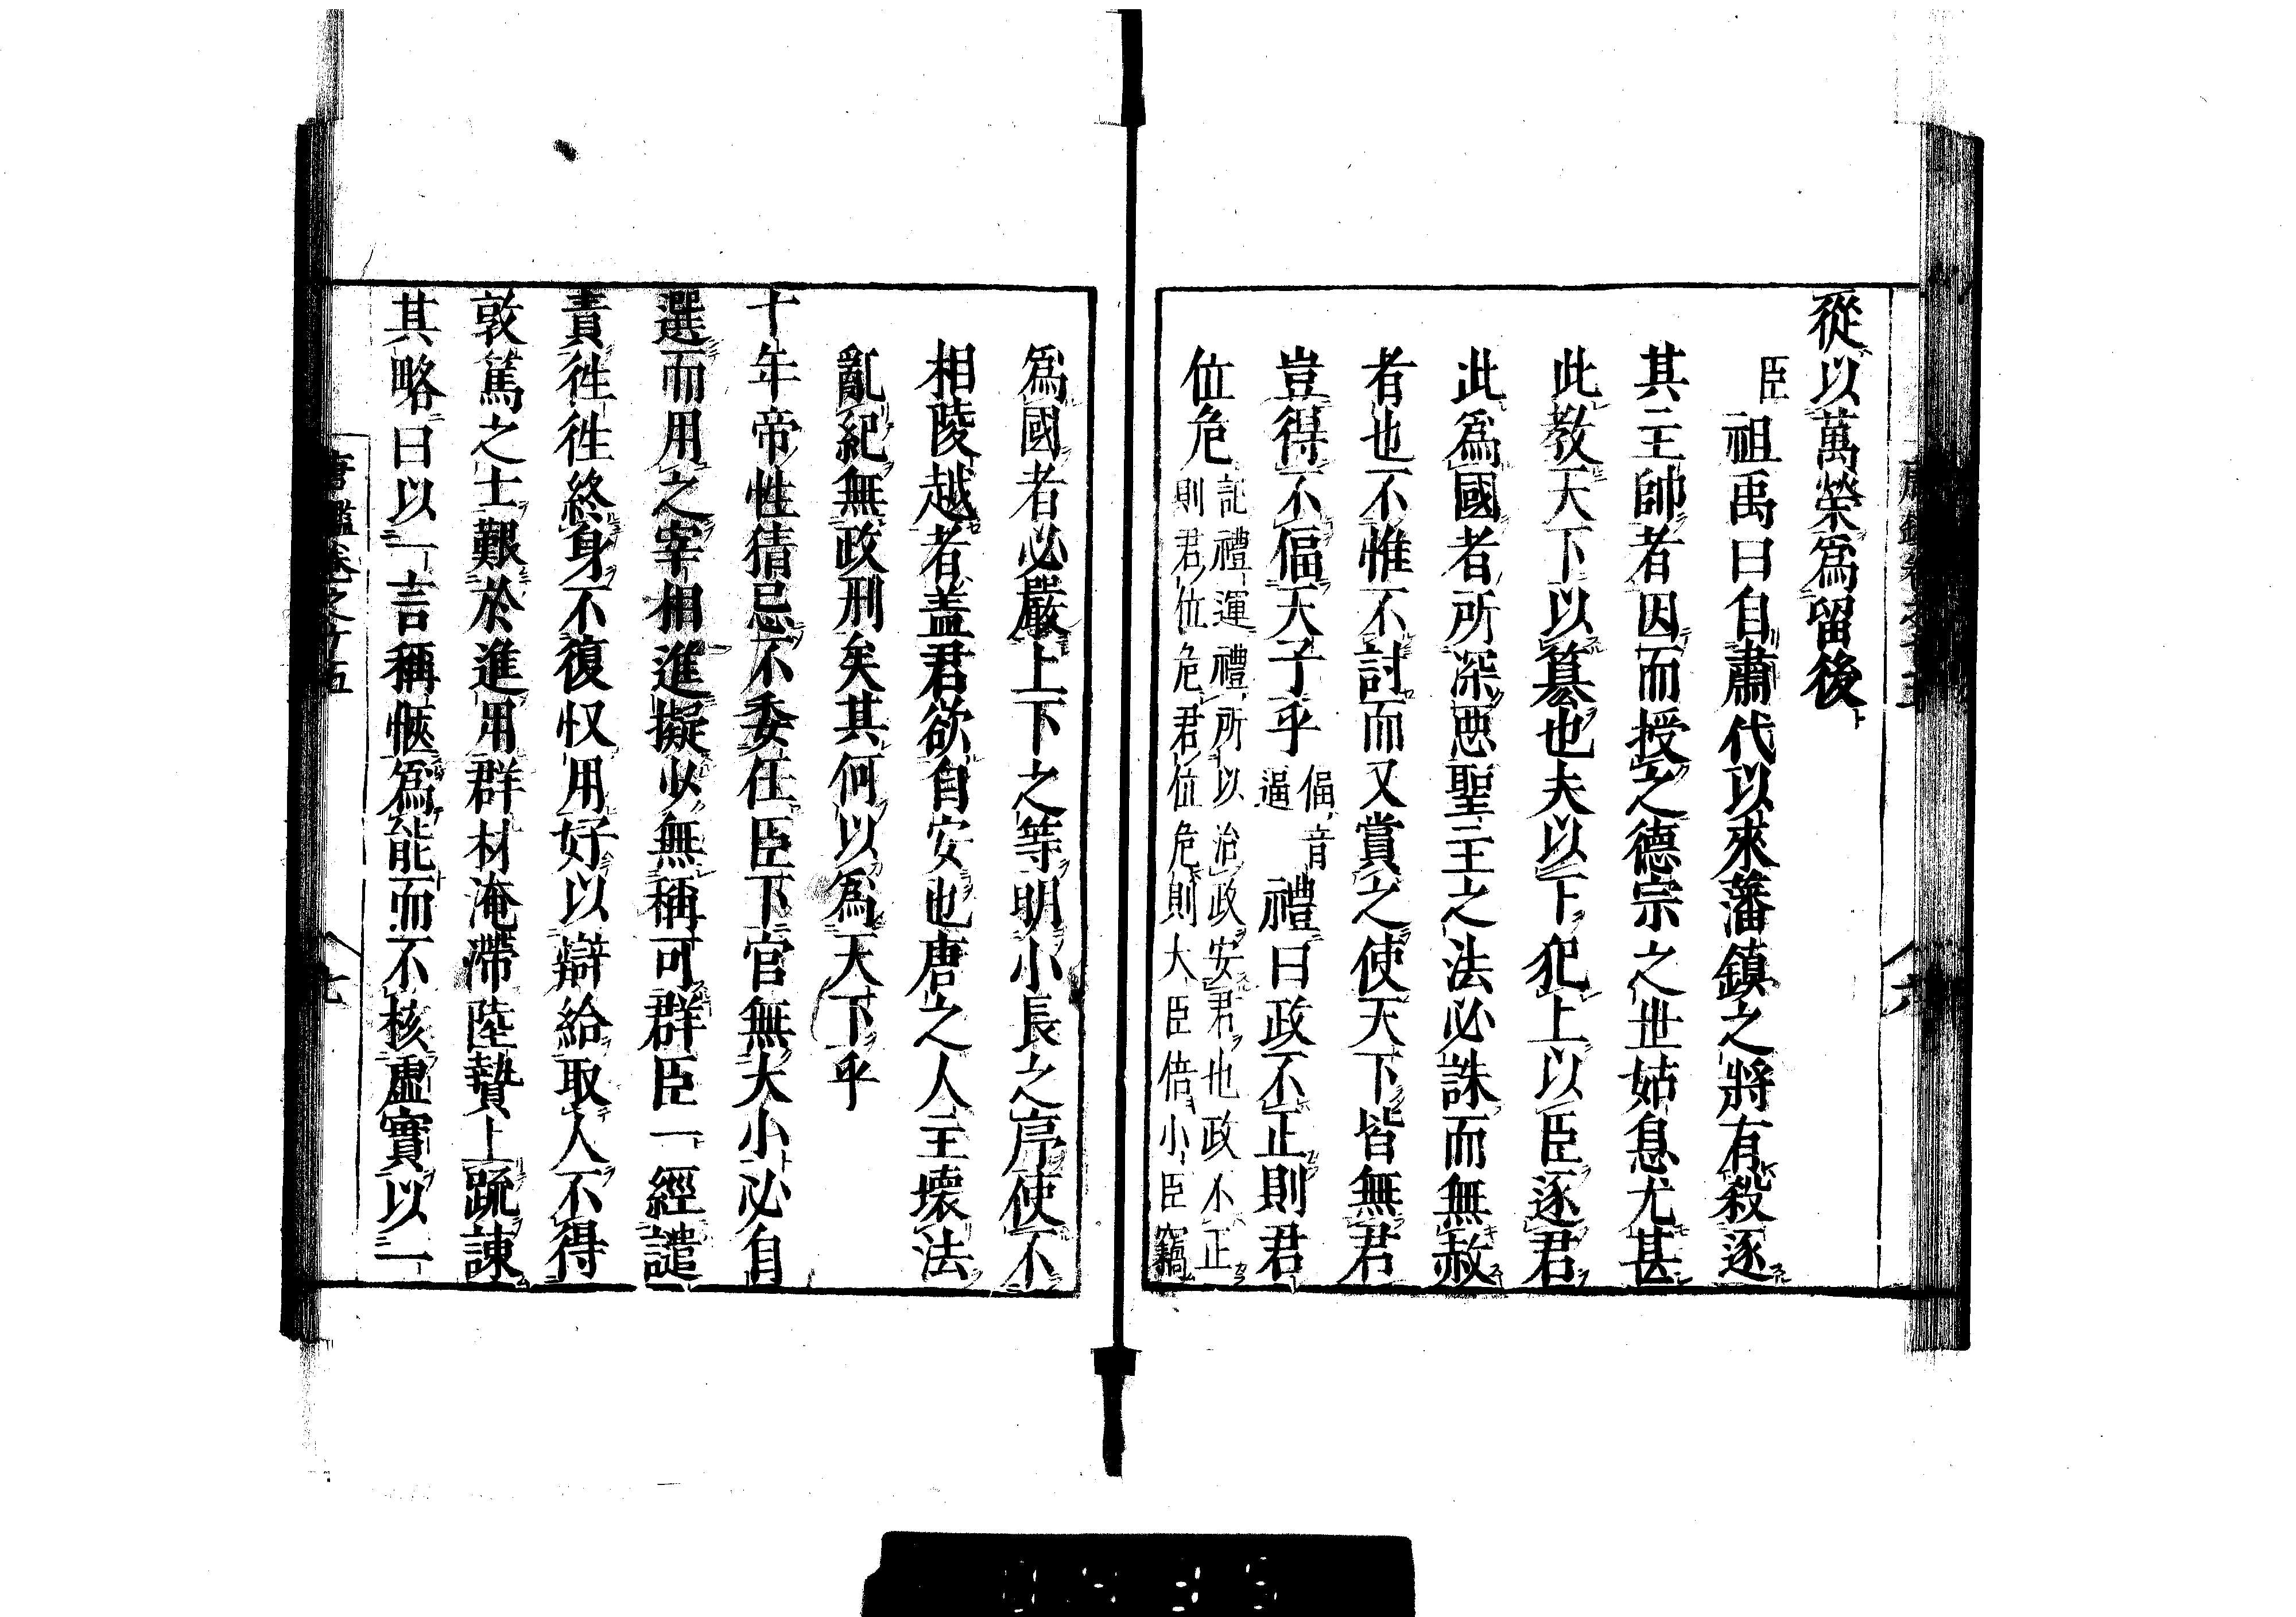 從以萬榮爲留後
臣祖禹曰自肅代以來藩鎮之將有殺逐
其主帥者因而授之德宗之世姑息尤甚
此教天下以簒也夫以下犯上以臣逐君
此爲國者所深惡聖王之法必誅而無赦
者也不惟不討而又賞之使天下皆無君
豈得不偪天子乎偪音逼禮曰政不正則君
位危記禮運禮所以治政安君也政不正則君位危君位危則大臣倍小臣竊
爲國者必嚴上下之等明小長之序使不
相陵越者盖君欲自安也唐之人主壞法
亂紀無政刑矣其何以爲天下乎
十年帝性猜忌不委任臣下官無大小必自
選而用之宰相進擬少無稱可群臣一經譴
責徃徃終身不復收用好以辯給取人不得
敦篤之士艱於進用群材淹滯陸贄上疏諫
其略曰以一言稱愜爲能而不核虛實以一
唐鑑卷之十五
七